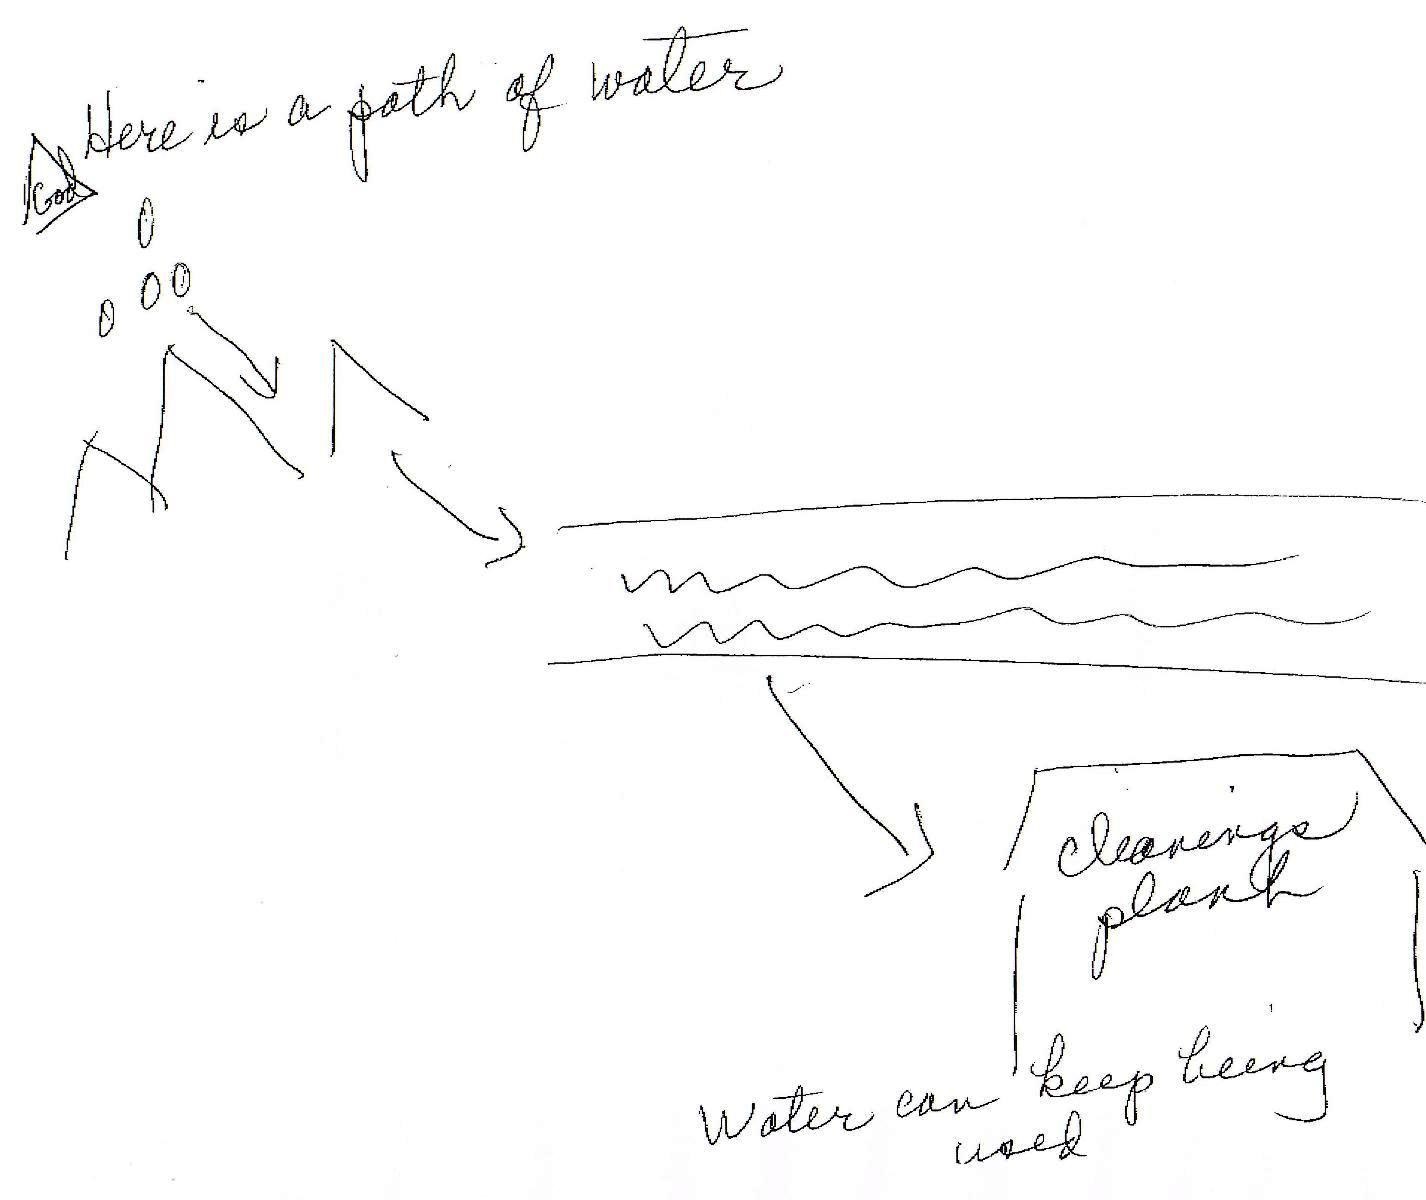 Here is a path of water
God
cleanings
plant
Water can keep being
used